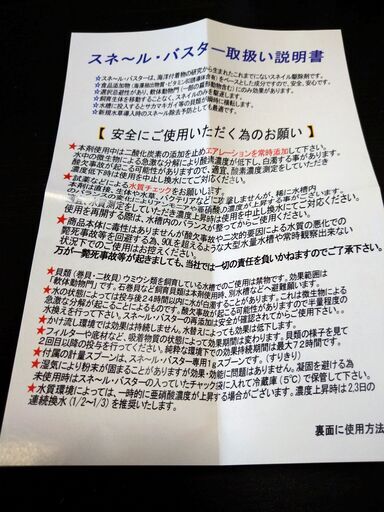 スネ～ル・バスター取扱い説明書
☆スネ～ル・バスターは、海洋付着物の研究から生まれたこれまでにないスネイル駆除剤です。
をベースとした成分ですので、安心、安全です。
☆選択忌避性があり、軟体動物門
にのみ効果があります。
☆飼育生体を移動することなく、スネイルのみを駆逐します。
☆水槽に投入するとサカマキガイ等の貝類が瞬時に横転します。
☆新規水草導入時のスネール除去予防としても最適。
【 安全にご使用いただく為のお願い 】
★本剤使用中は二酸化炭素の添加を止めエアレーションを常時添加して下さい。
水中の微生物による急激な分解により酸素濃度が低下し、白濁する事があります。
酸欠事故が起こる可能性がありますので、適宜、酸素濃度測定をしていただき
濃度低下時は使用を中止し換水にてご対応ください。
★試薬などによる水質チェックをお願いします。
本剤は直接、生体や水草、バクテリアなどに攻撃しませんが、稀に水槽内
使用を再開する際は、水槽内のバランスが整ってからご使用ください。
★商品本体に毒性はありませんが酸欠事故や二次的要因による水質の悪化での
斃死事故等を回避する為、90Lを超えるような大型水量水槽や常時観察出来ない
状況下でのご使用はお控えください。
万が一斃死事故等が起きましても、当社では一切の責任を負いかねますのでご了承下さい。
★貝類（巻貝・二枚貝）ウミウシ類を飼育している水槽でのご使用は禁物です。効果範囲は
「軟体動物門」です。石巻貝など飼育貝類は本剤使用時、別水槽などへ避難願います。
★水の状態によっては投与後２４時間以内に水が白濁することがあります。これは微生物による
急激な分解が起こることによるものです。酸欠事故が起こる可能性がありますので半量程度の
水換えを行って下さい。スネ～ル・バスターの再添加は安全が確認されてからご使用下さい。
★かけ流し環境では効果は持続しません。水替えによっても効果は低下します。
★フィルターや底材など、吸着物質の状態によって効果期間は変わります。貝類の様子を見て
２回目以降の投与を行ってください。純粋な環境下での効果持続期間は最大７２時間です。
★付属の計量スプーンは、スネ～ル・バスター専用１ｇスプーンです。（すりきり）
★湿気により粉末が固まることがありますが効果・効能に問題はありません。凝固を避ける為
未使用時はスネ～ル・バスターの入っていたチャック袋に入れて冷蔵庫（５℃）で保管して下さい。
★水質環境によっては、一時的に亜硝酸濃度が上昇する場合がございます。濃度上昇時は2,3日の
連続換水（1/2～1/3）を推奨いたします。
裏面に使用方法